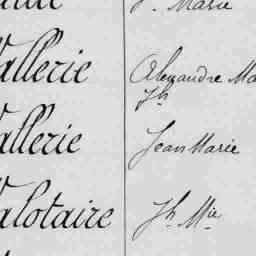 J. Marie
allerie Alexandre Ma
Jh
allerie Jean Marie
alotaire Jh Mie